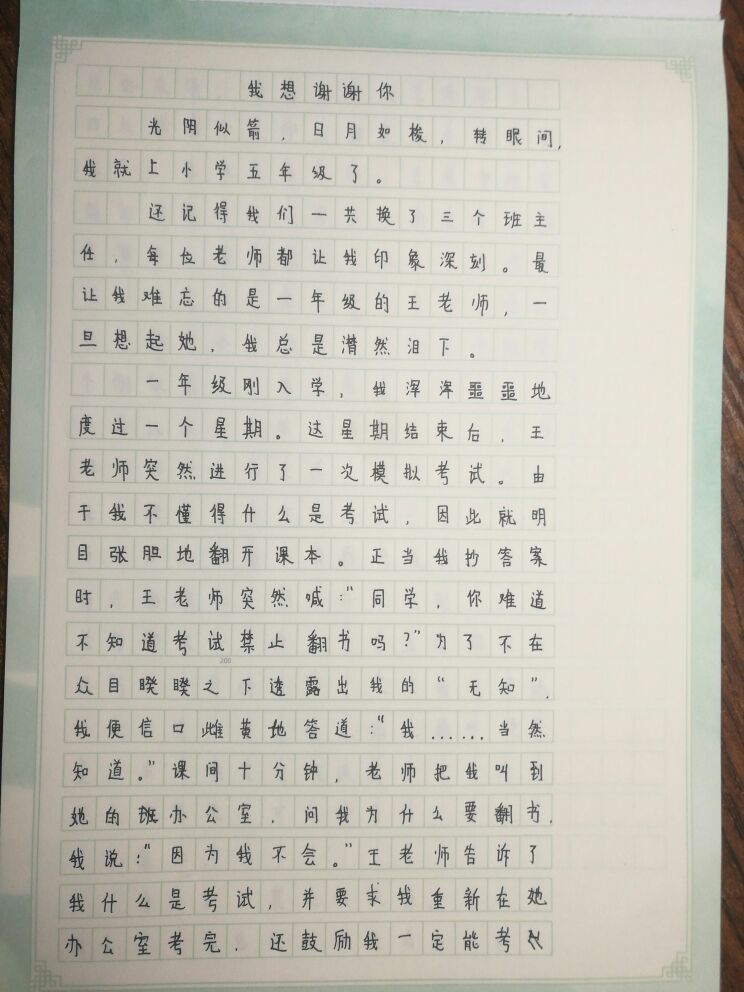 我想谢谢你
光阴似箭，日月如梭，转眼间，
我就上小学五年级了。
还记得我们一共换了三个班主
任，每位老师都让我印象深刻。最
让我难忘的是一年级的王老师，一
旦想起她，我总是潸然泪下。
一年级刚入学，我浑浑噩噩地
度过一个星期。这星期结束后，王
老师突然进行了一次模拟考试。由
于我不懂得什么是考试，因此就明
目张胆地翻开课本。正当我抄答案
时，王老师突然喊：“同学，你难道
不知道考试禁止翻书吗？”为了不在
200
众目睽睽之下透露出我的“无知”，
我便信口雌黄地答道：“我……当然
知道。”课间十分钟，老师把我叫到
她的班办公室，问我为什么要翻书，
我说：“因为我不会。”王老师告诉了
我什么是考试，并要求我重新在她
办公室考完，还鼓励我一定能考